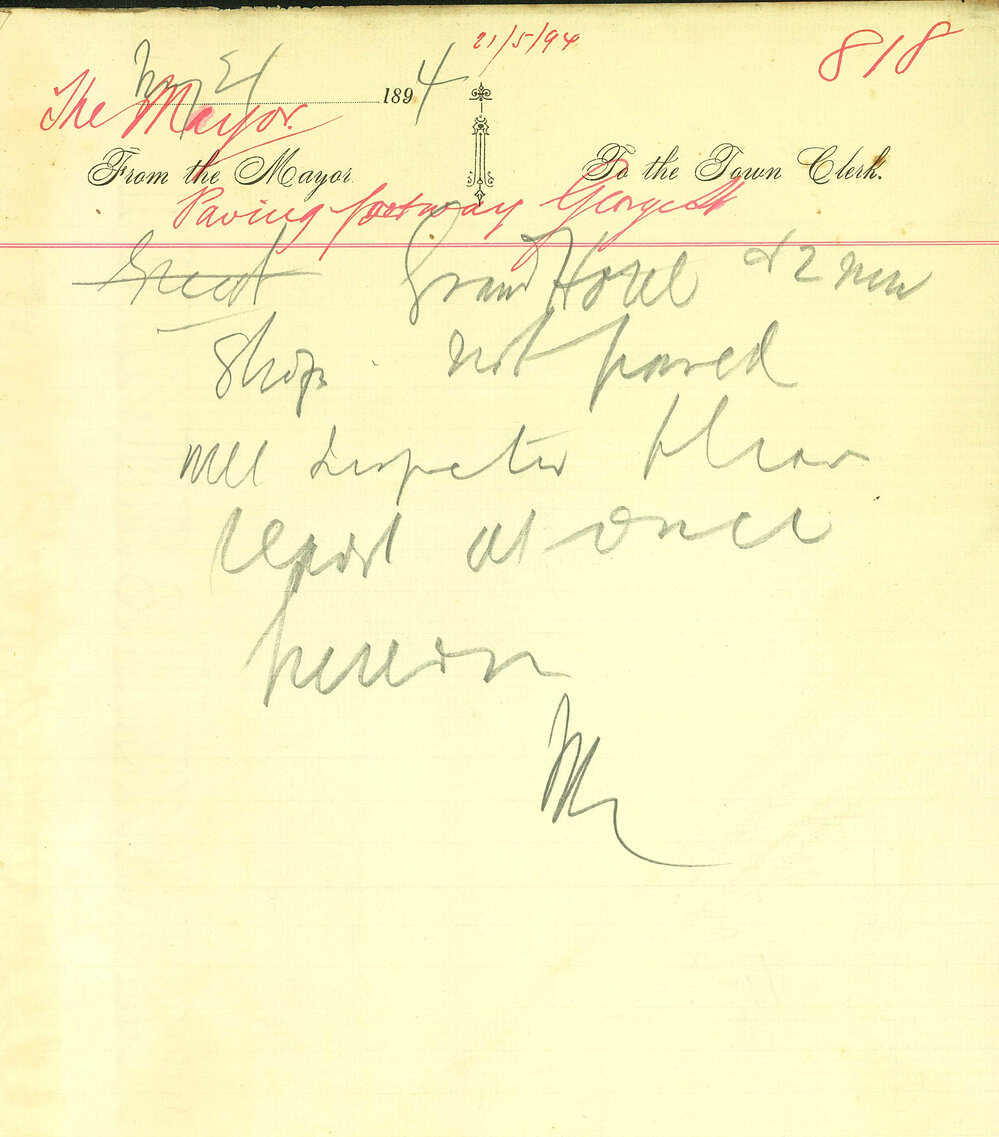 21/5/94
818
May 21 1894
The Mayor.
From the Mayor To the Town Clerk.
Paving footway George St
Grand Hotel & 2 new
Shops not paved
will Inspector please
report at once
hereon